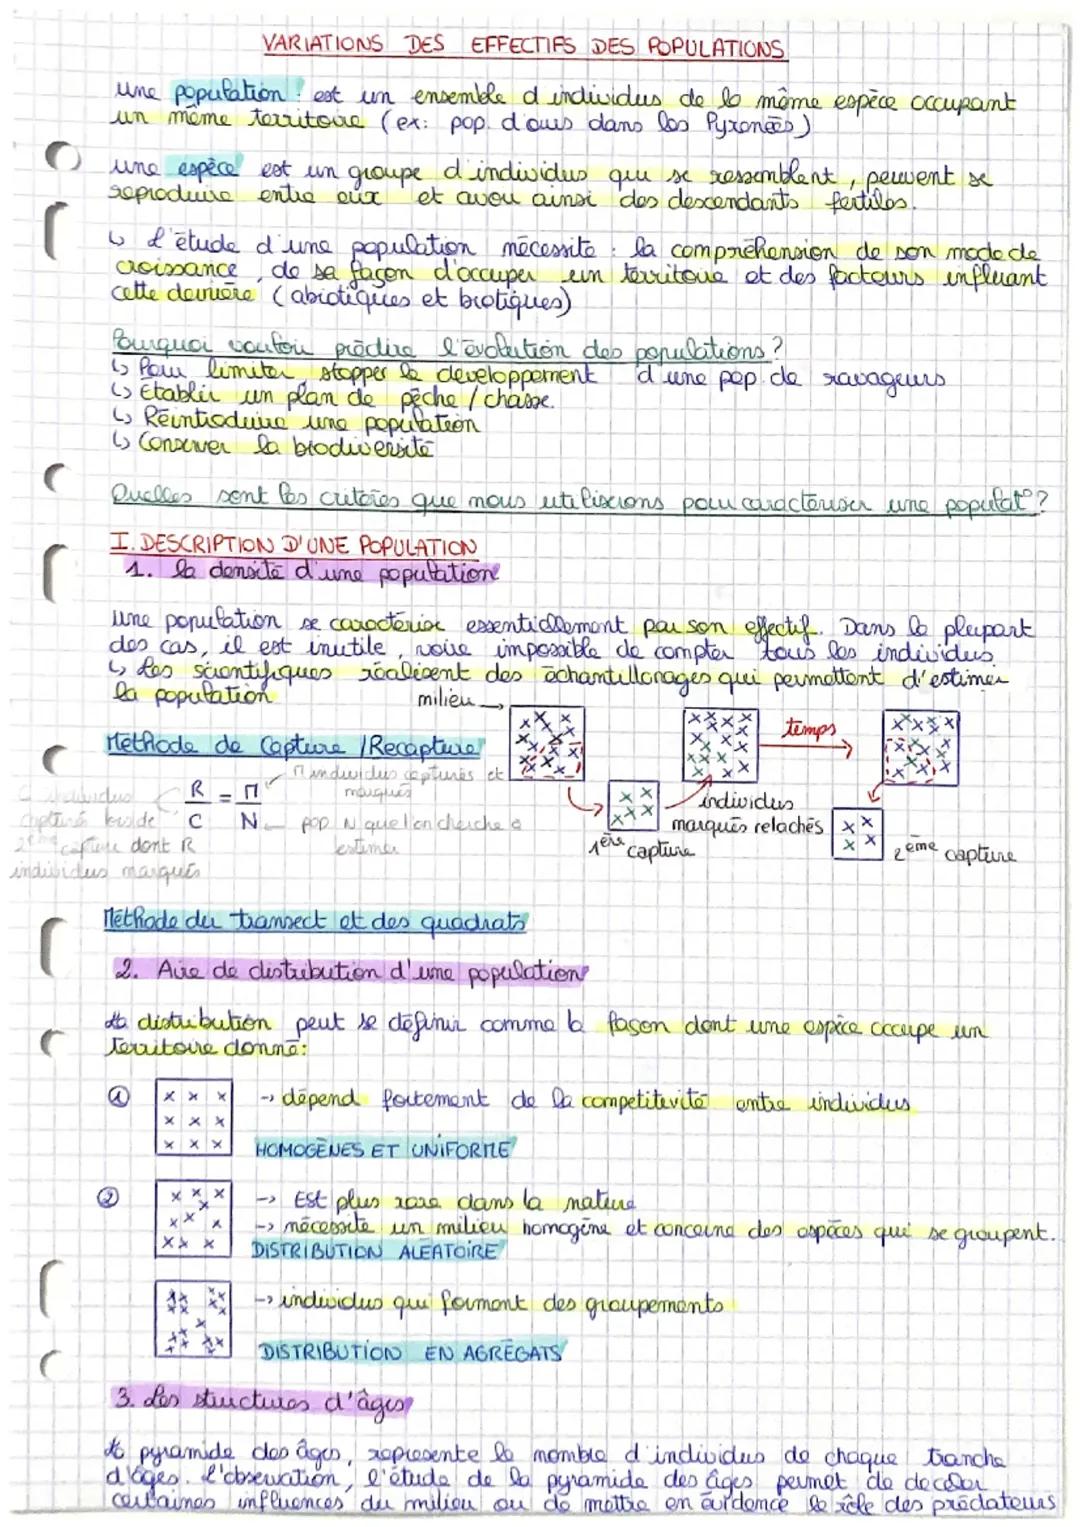 VARIATIONS DES EFFECTIFS DES POPULATIONS
une population : est un ensemble d'individus de la même espèce occupant
un même territoire (ex: pop. d'ours dans les Pyrénées)
une espèce est un groupe d'individus qui se ressemblent, peuvent se
reproduire entre eux et avoir ainsi des descendants fertiles.
↳ L'étude d'une population nécessite : la compréhension de son mode de
croissance, de sa façon d'occuper un territoire et des facteurs influant
cette dernière (abiotiques et biotiques)
Pourquoi vouloir prédire l'évolution des populations ?
↳ Pour limiter / stopper le développement d'une pop. de ravageurs
↳ Etablir un plan de pêche / chasse.
↳ Réintroduire une population
↳ Conserver la biodiversité
Quelles sont les critères que nous utiliserons pour caractériser une populat° ?
I. DESCRIPTION D'UNE POPULATION
1. la densité d'une population
une population se caractérise essentiellement par son effectif. Dans la plupart
des cas, il est inutile, voire impossible de compter tous les individus
↳ Les scientifiques réalisent des échantillonages qui permettent d'estimer
la population
milieu →
temps
Méthode de Capture / Recapture
M individus capturés et
marqués
R/C = M/N
C individus
capturés lors de
2ème capture dont R
individus marqués
pop N que l'on cherche à
estimer
individus
marqués relachés
1ère capture
2ème capture
Méthode du transect et des quadrats
2. Aire de distribution d'une population
La distribution peut se définir comme la façon dont une espèce occupe un
territoire donné :
① → dépend fortement de la compétitivité entre individus
HOMOGÈNES ET UNIFORME
② → Est plus rare dans la nature
→ nécessite un milieu homogène et concerne des espèces qui se groupent.
DISTRIBUTION ALÉATOIRE
→ individus qui forment des groupements
DISTRIBUTION EN AGRÉGATS
3. Les structures d'âges
La pyramide des âges, représente le nombre d'individus de chaque tranche
d'âges. L'observation, l'étude de la pyramide des âges permet de déceler
certaines influences du milieu ou de mettre en évidence le rôle des prédateurs